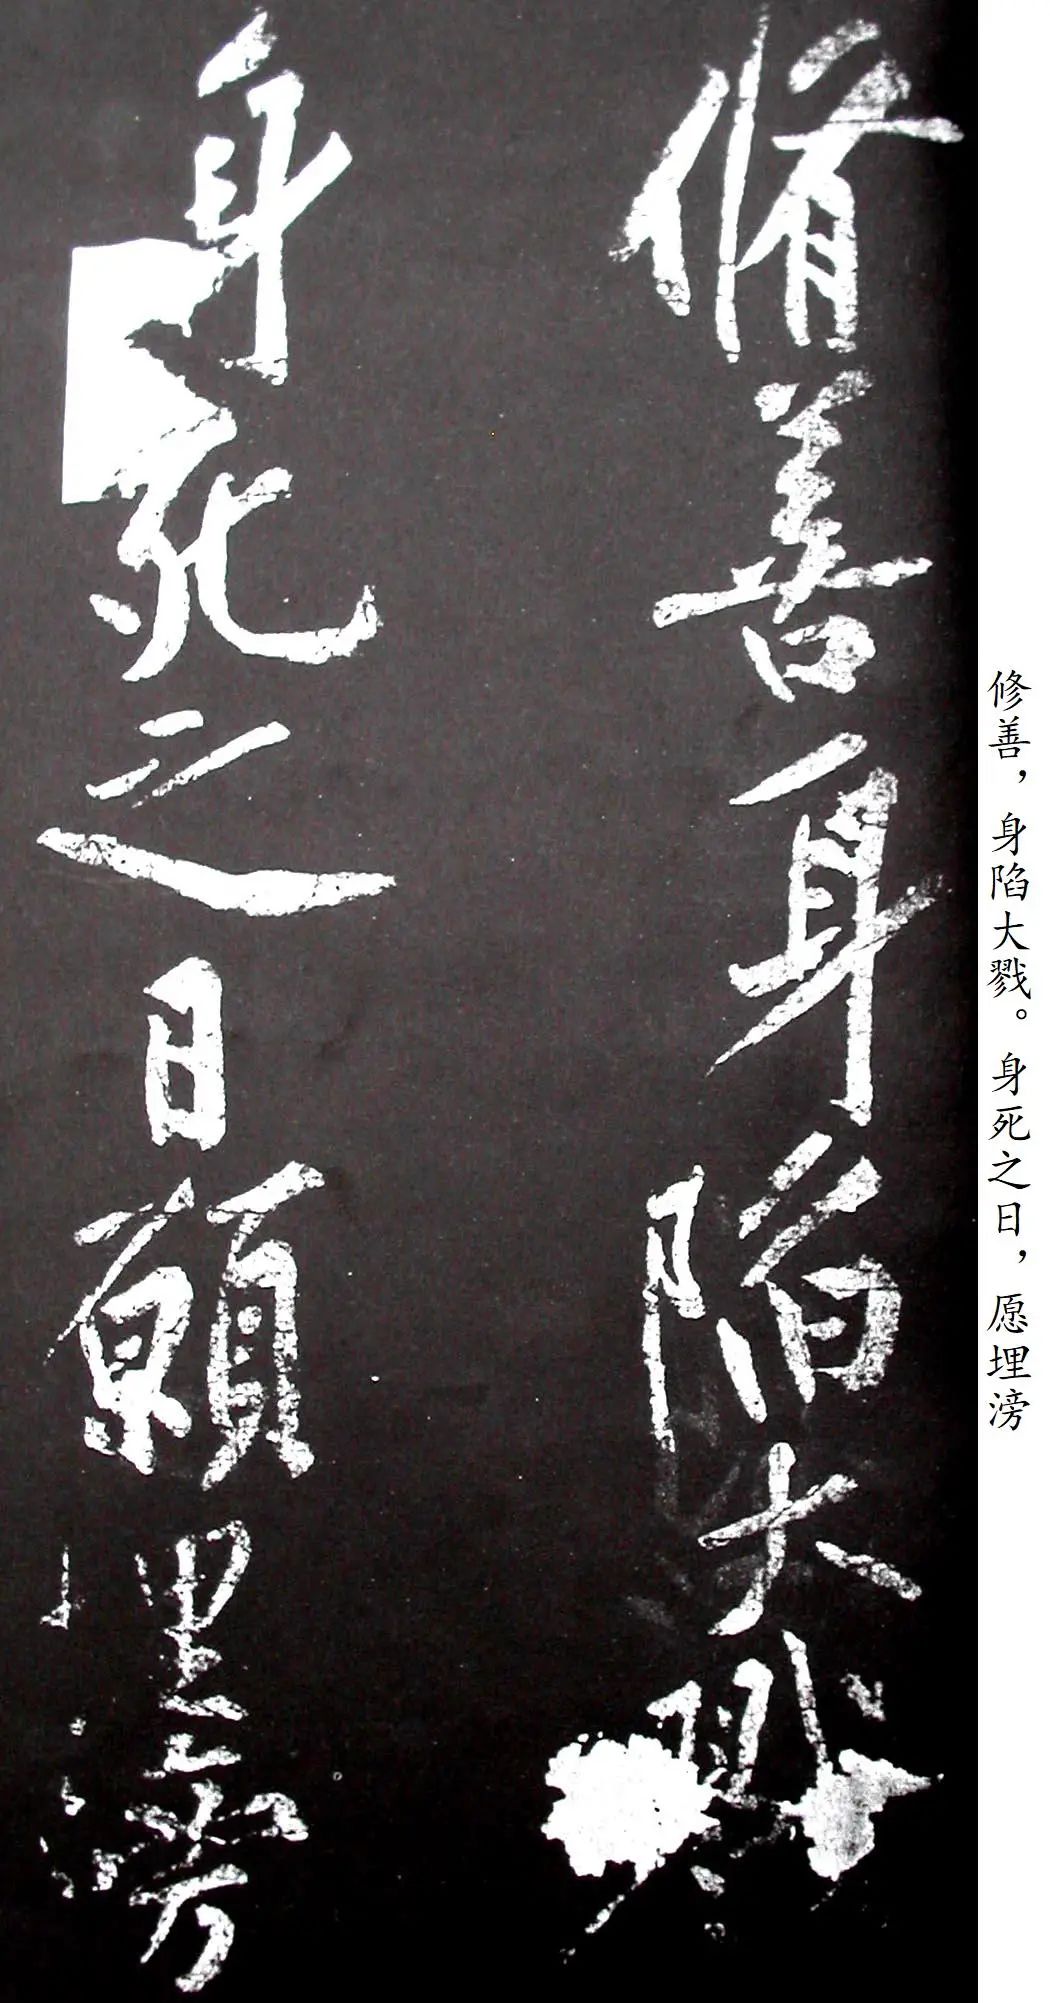 脩善身陷大戮
身死之日願埋滂
修善，身陷大戮。身死之日，愿埋滂